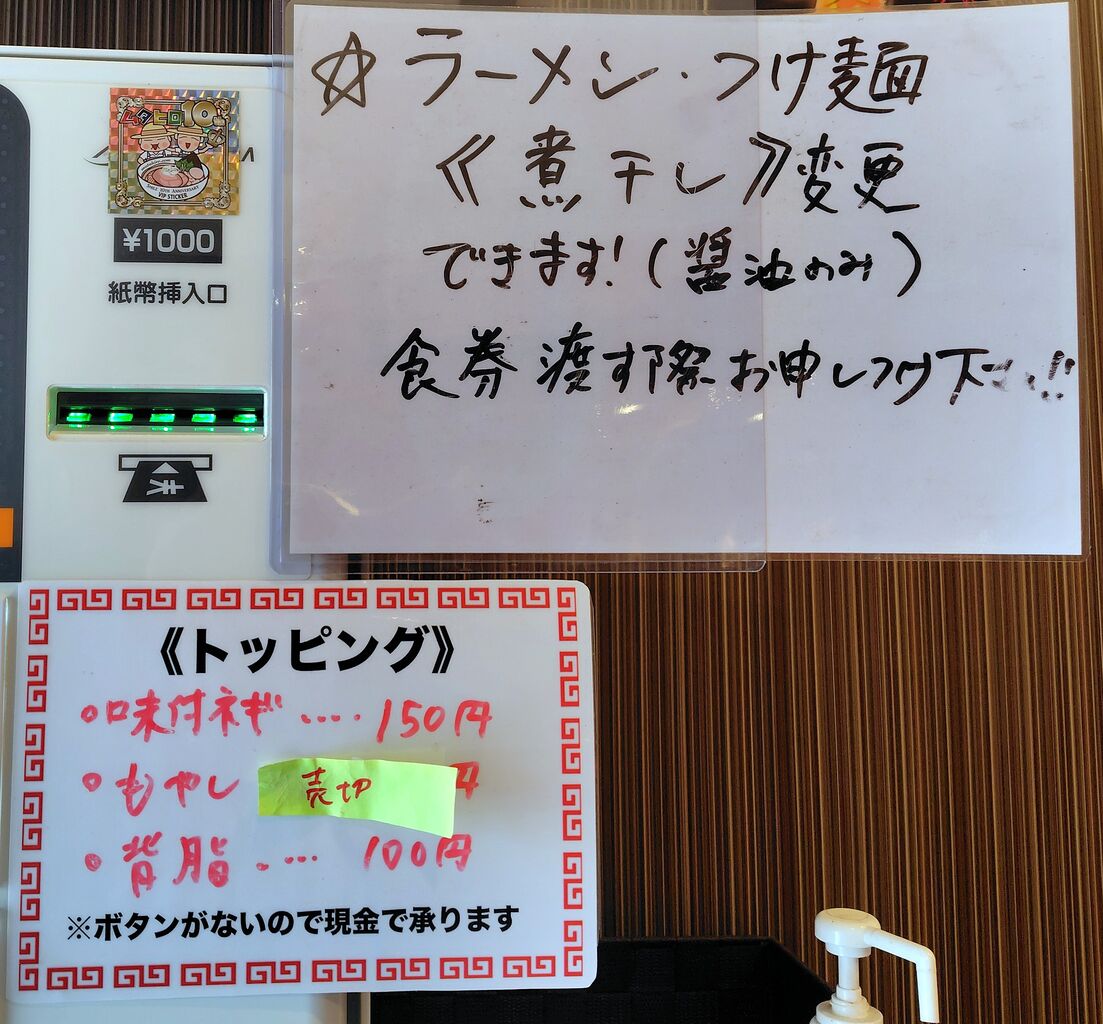 ☆ ラーメン・つけ麺
《煮干し》変更
できます!(醤油のみ)
食券渡す際お申しつけ下さい!!
ムタヒロ10
SINCE 10TH ANNIVERSARY
VIP STICKER
¥1000
紙幣挿入口
《トッピング》
○味付ネギ ..... 150円
○もやし 売切 円
○背脂 .... 100円
※ボタンがないので現金で承ります